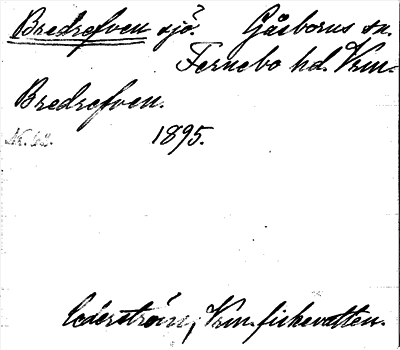 Bredrefven sjö? Gåsborns sn.
Fernebo hd. Vrm.
Bredrefven.
1895.
Cederström, Vrm. fiskevatten.